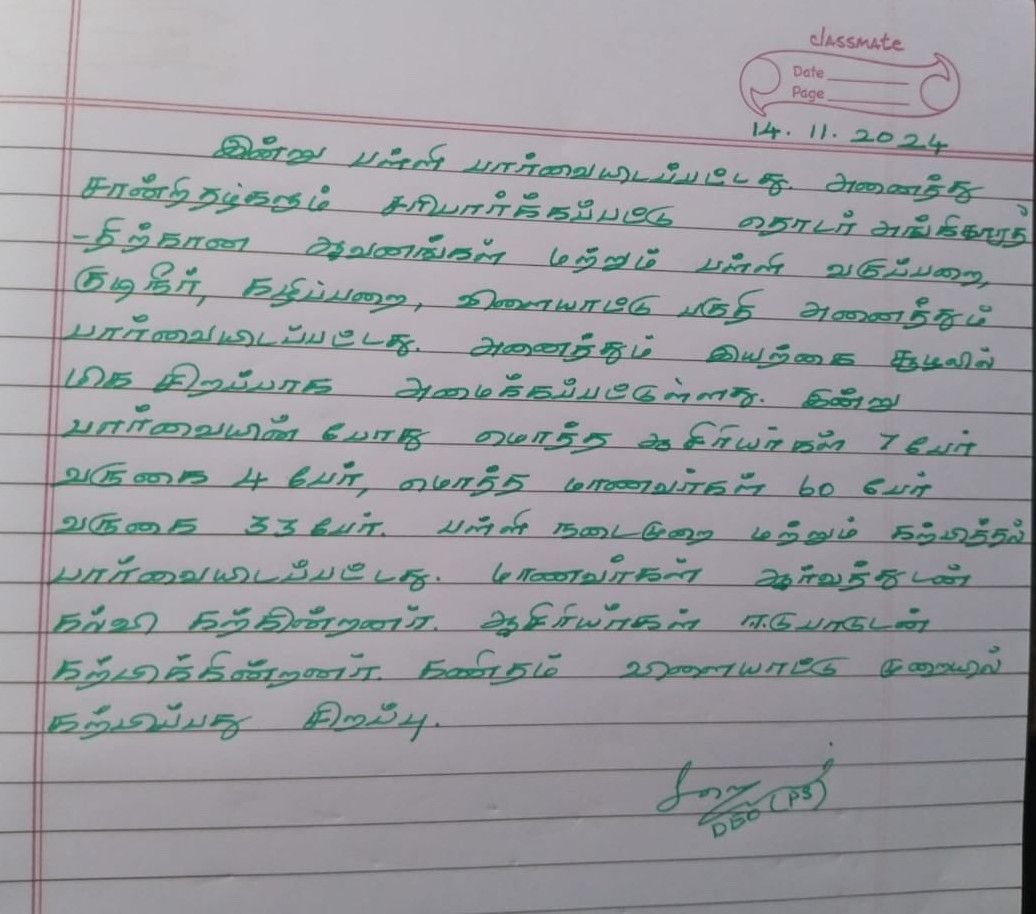 classmate
Date
Page
14.11.2024
இன்று பள்ளி பார்வையிடப்பட்டது. அனைத்து
சான்றிதழ்களும் சரிபார்க்கப்பட்டு தொடர் அங்கீகாரத்
-திற்கான ஆவணங்கள் மற்றும் பள்ளி வகுப்பறை,
குடிநீர், கழிப்பறை, விளையாட்டு பகுதி அனைத்தும்
பார்வையிடப்பட்டது. அனைத்தும் இயற்கை சூழலில்
மிக சிறப்பாக அமைக்கப்பட்டுள்ளது. இன்று
பார்வையின் போது மொத்த ஆசிரியர்கள் 7 பேர்
வருகை 4 பேர், மொத்த மாணவர்கள் 60 பேர்
வருகை 33 பேர். பள்ளி நடைமுறை மற்றும் கற்பித்தல்
பார்வையிடப்பட்டது. மாணவர்கள் ஆர்வத்துடன்
கல்வி கற்கின்றனர். ஆசிரியர்கள் ஈடுபாடுடன்
கற்பிக்கின்றனர். கணிதம் விளையாட்டு முறையில்
கற்பிப்பது சிறப்பு.
DEO (PS)